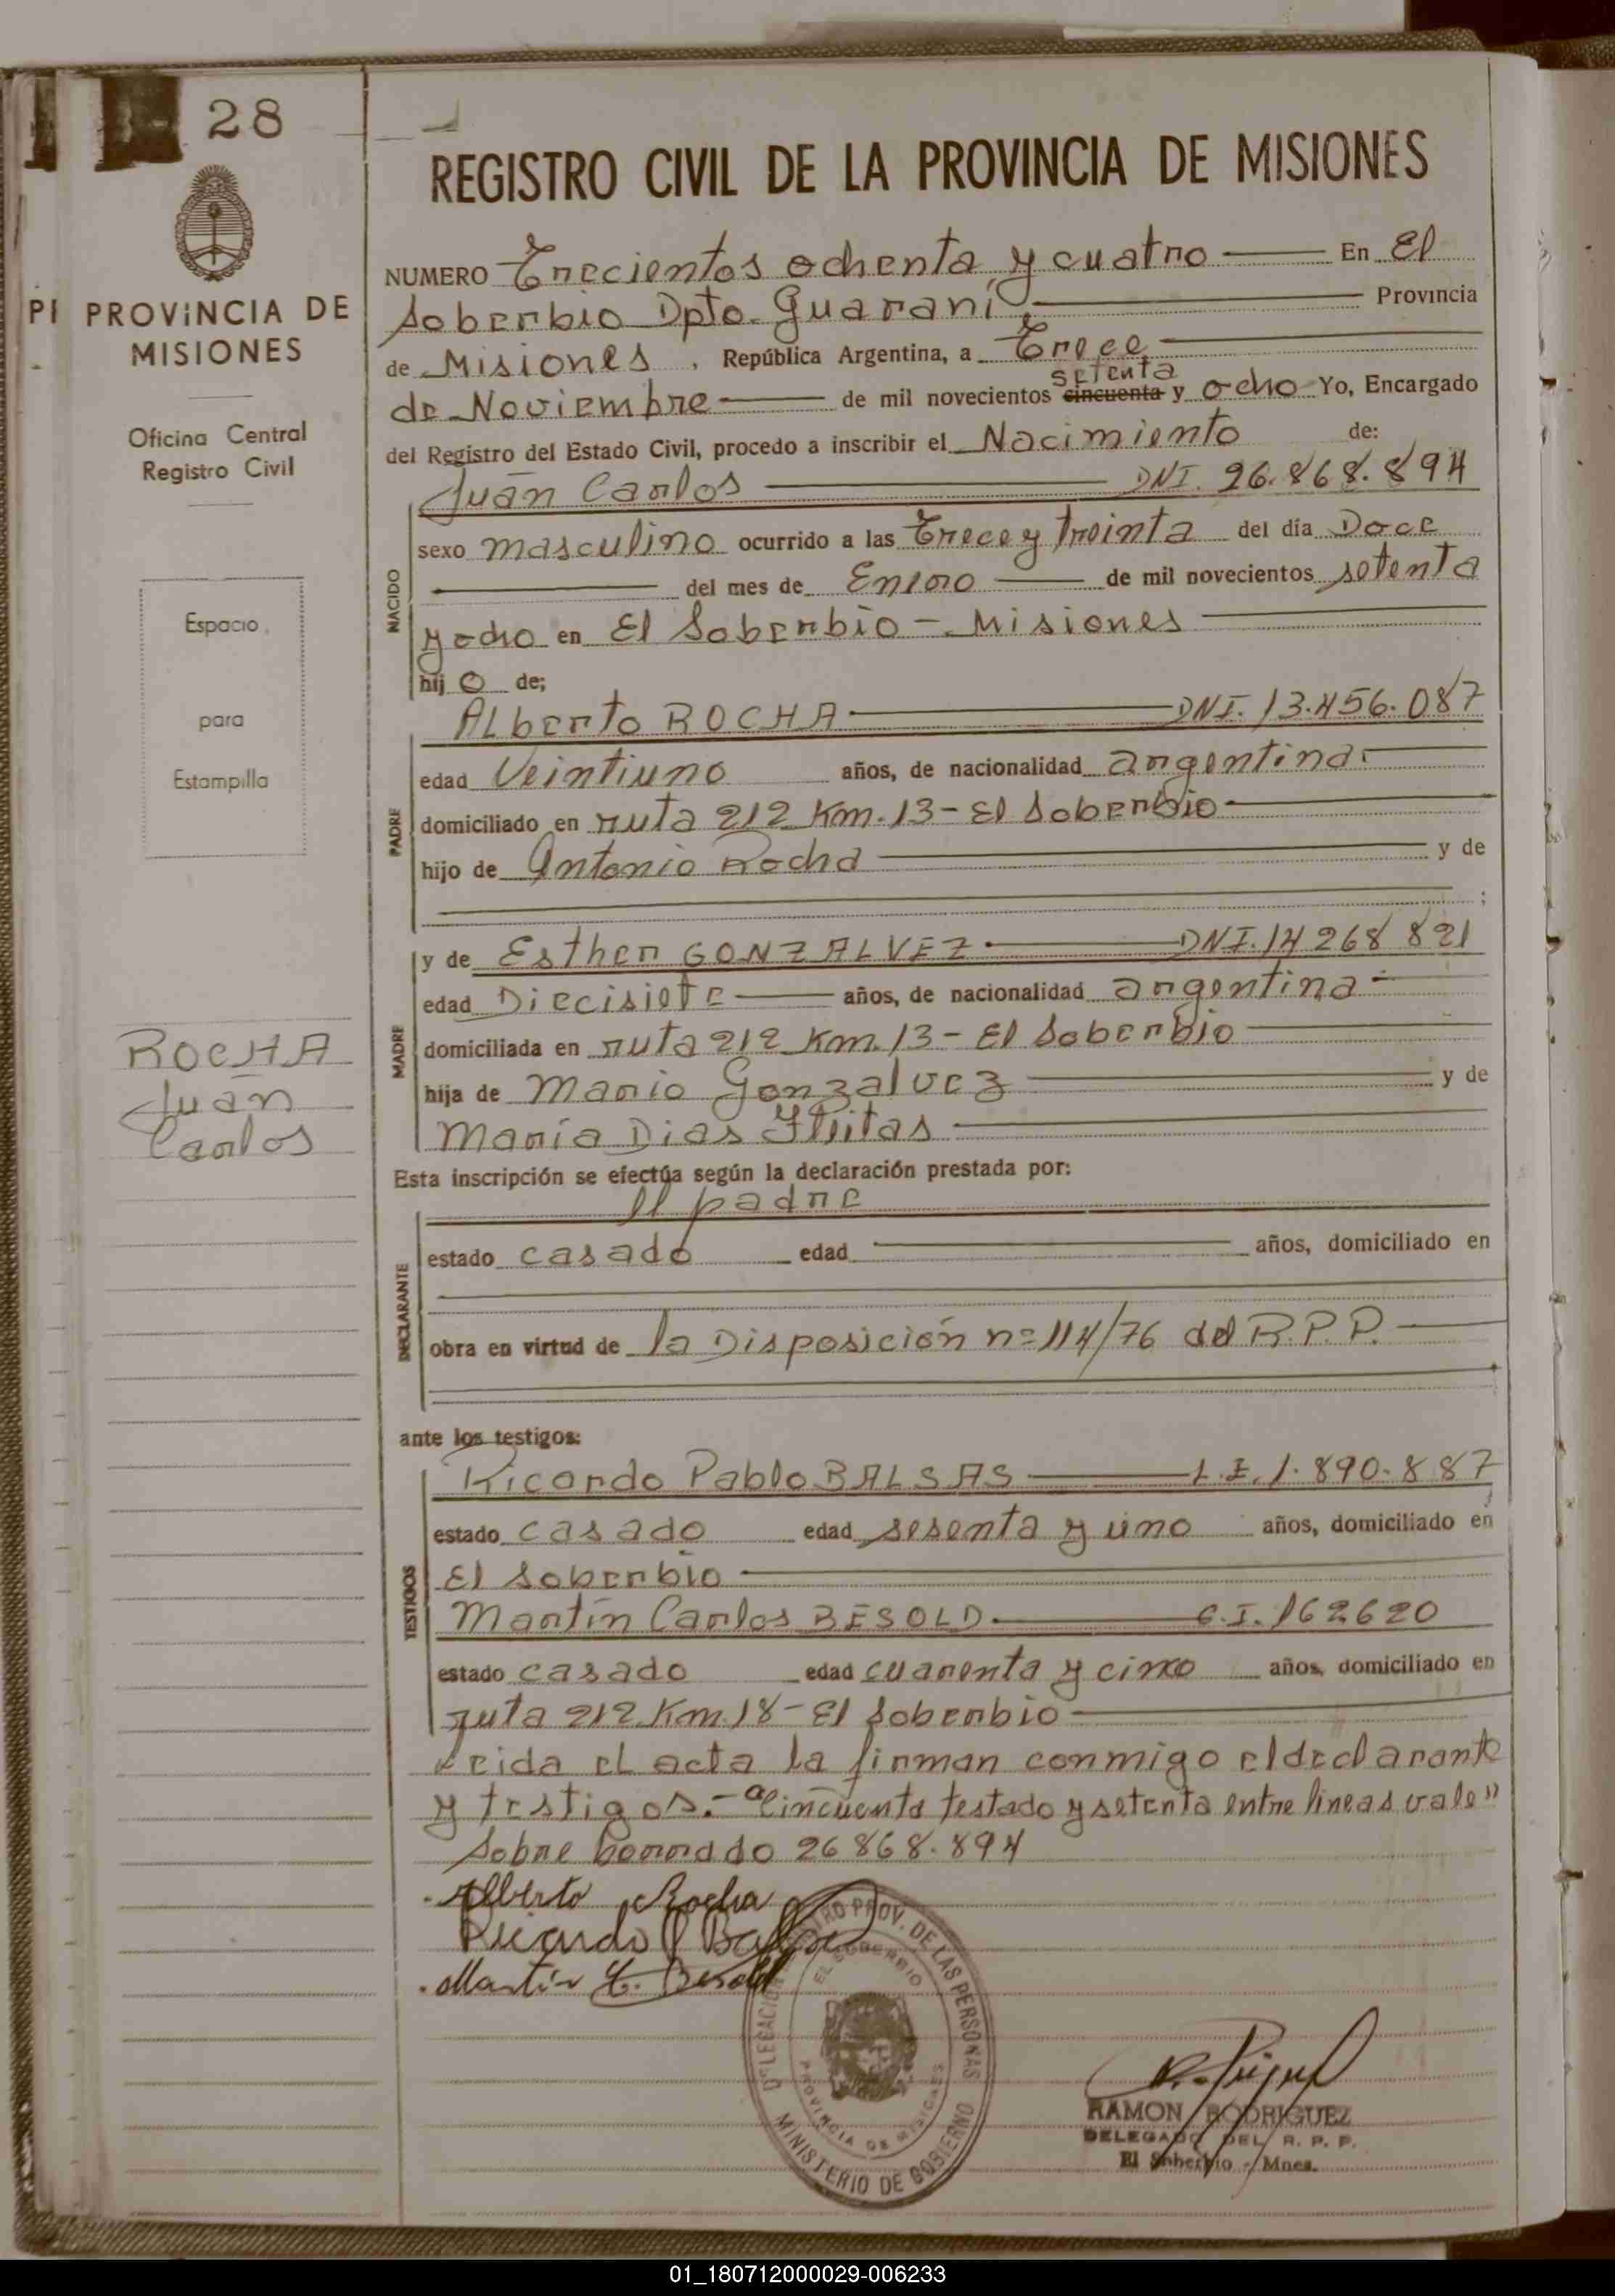 28
REGISTRO CIVIL DE LA PROVINCIA DE MISIONES
PI PROViNCIA DE
MISIONES
Oficina Central
Registro Civil
Espacio
para
Estampilla
ROCHA
Juan
Carlos
NUMERO Trecientos ochenta y cuatro En El
Soberbio Dpto. Guaraní Provincia
de Misiones, República Argentina, a Trece
setenta
de Noviembre de mil novecientos cincuenta y ocho Yo, Encargado
del Registro del Estado Civil, procedo a inscribir el Nacimiento de:
Juan Carlos DNI. 26.868.894
NACIDO
sexo masculino ocurrido a las Trece y treinta del día Doce
del mes de Enero de mil novecientos setenta
y ocho en El Soberbio - Misiones
hij o de;
PADRE
Alberto ROCHA DNI. 13.456.087
edad Veintiuno años, de nacionalidad argentina
domiciliado en ruta 212 Km. 13 - El Soberbio
hijo de Antonio Rocha y de
;
MADRE
y de Esther GONZALVEZ DNI. 14 268 821
edad Diecisiete años, de nacionalidad argentina
domiciliada en ruta 212 Km. 13 - El Soberbio
hija de Mario Gonzalvez y de
María Dias
Esta inscripción se efectúa según la declaración prestada por:
DECLARANTE
el padre
estado casado edad años, domiciliado en
obra en virtud de la Disposición nº 114/76 del R.P.P.
ante los testigos:
TESTIGOS
Ricardo Pablo BALSAS L.E. 1.890.887
estado casado edad sesenta y uno años, domiciliado en
El Soberbio
Martín Carlos BESOLD C.I. 162620
estado casado edad cuarenta y cinco años, domiciliado en
ruta 212 Km. 18 - El Soberbio
Leida el acta la firman conmigo el declarante
y testigos.- "Cincuenta testado y setenta entre lineas vale"
Sobre borrado 26 868.894
Alberto Rocha
Ricardo P Balsas
Martín C. Besold
DELEGACION REGISTRO PROV. DE LAS PERSONAS
EL SOBERBIO
PROVINCIA DE MISIONES
MINISTERIO DE GOBIERNO
RAMON RODRIGUEZ
DELEGADO DEL R. P. P.
El Soberbio - Mnes.
01_180712000029-006233